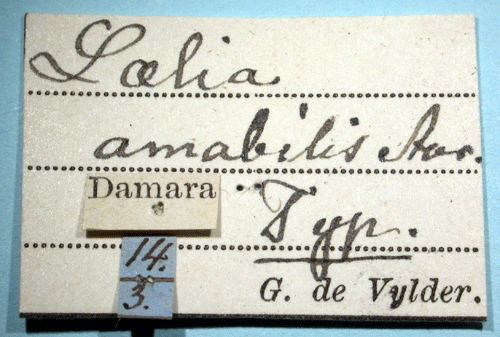 Lœlia
amabilis Aur.
Damara
Typ.
14.
3.
G. de Vylder.